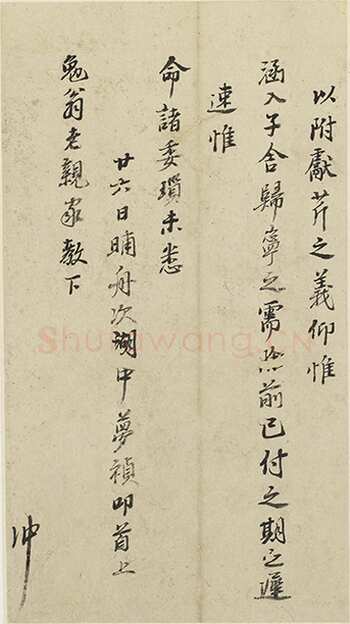 以附獻芹之義仰惟
涵入子舍歸寧之需點前已付之期之遲
速惟
命諸委瑣未悉
廿六日晡舟次湖中夢禎叩首上
勉翁老親家教下
冲